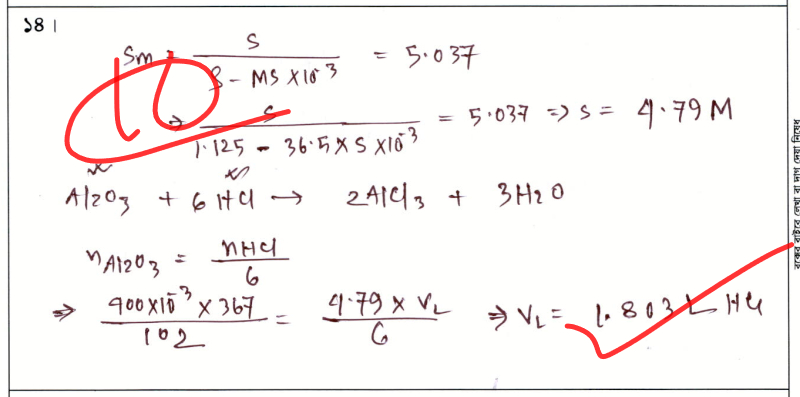 ১৪।
Sm = S / (ρ - MS × 10⁻³) = 5.037
⇒ S / (1.125 - 36.5 × S × 10⁻³) = 5.037 ⇒ S = 4.79 M
10
Al2O3 + 6 HCl → 2AlCl3 + 3H2O
nAl2O3 = nHCl / 6
⇒ (900×10⁻³ × 367) / 102 = (4.79 × VL) / 6 ⇒ VL = 1.803 L HCl
বক্সের বাইরে লেখা বা দাগ দেয়া নিষেধ